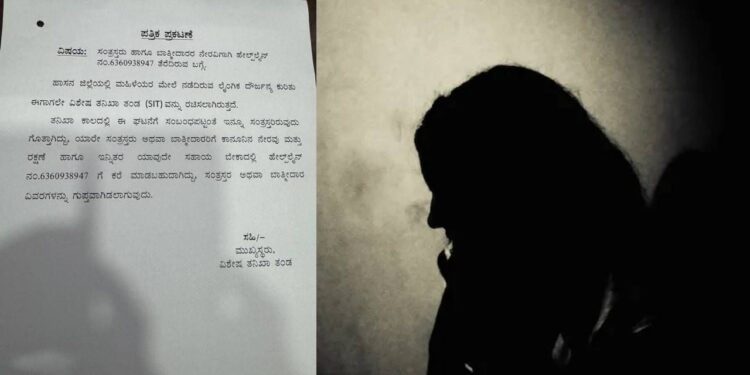 ಪತ್ರಿಕಾ ಪ್ರಕಟಣೆ
ವಿಷಯ: ಸಂತ್ರಸ್ತರು ಹಾಗೂ ಬಾತ್ಮೀದಾರರ ನೇರವಿಗಾಗಿ ಹೇಲ್ಪ್‌ಲೈನ್
ನಂ.6360938947 ತೆರೆದಿರುವ ಬಗ್ಗೆ.
ಹಾಸನ ಜಿಲ್ಲೆಯಲ್ಲಿ ಮಹಿಳೆಯರ ಮೇಲೆ ನಡೆದಿರುವ ಲೈಂಗಿಕ ದೌರ್ಜನ್ಯ ಕುರಿತು
ಈಗಾಗಲೇ ವಿಶೇಷ ತನಿಖಾ ತಂಡ (SIT) ವನ್ನು ರಚಿಸಲಾಗಿರುತ್ತದೆ.
ತನಿಖಾ ಕಾಲದಲ್ಲಿ ಈ ಘಟನೆಗೆ ಸಂಬಂಧಪಟ್ಟಂತೆ ಇನ್ನೂ ಸಂತ್ರಸ್ತರಿರುವುದು
ಗೊತ್ತಾಗಿದ್ದು, ಯಾರೇ ಸಂತ್ರಸ್ತರು ಅಥವಾ ಬಾತ್ಮೀದಾರರಿಗೆ ಕಾನೂನಿನ ನೇರವು ಮತ್ತು
ರಕ್ಷಣೆ ಹಾಗೂ ಇನ್ನಿತರ ಯಾವುದೇ ಸಹಾಯ ಬೇಕಾದಲ್ಲಿ ಹೇಲ್ಪ್‌ಲೈನ್
ನಂ.6360938947 ಗೆ ಕರೆ ಮಾಡಬಹುದಾಗಿದ್ದು, ಸಂತ್ರಸ್ತರ ಅಥವಾ ಬಾತ್ಮೀದಾರ
ವಿವರಗಳನ್ನು ಗುಪ್ತವಾಗಿಡಲಾಗುವುದು.
ಸಹಿ/-
ಮುಖ್ಯಸ್ಥರು,
ವಿಶೇಷ ತನಿಖಾ ತಂಡ